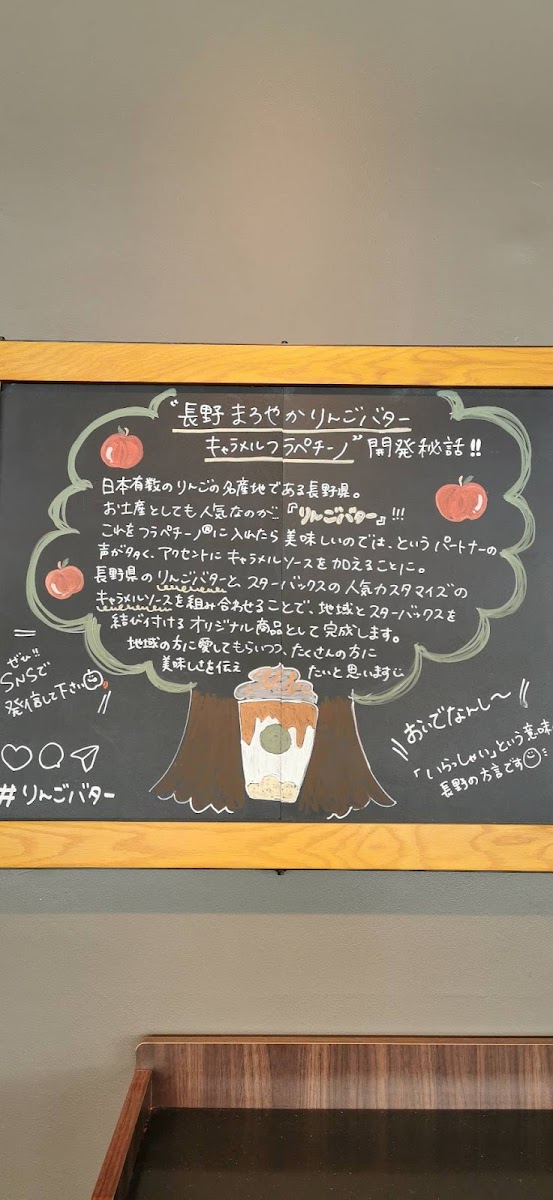 “長野 まろやかりんごバター
キャラメルフラペチーノ” 開発秘話!!
日本有数のりんごの名産地である長野県。
お土産としても人気なのが…『りんごバター』!!!
これをフラペチーノ®に入れたら美味しいのでは、というパートナーの
声が多く、アクセントにキャラメルソースを加えることに。
長野県のりんごバターと、スターバックスの人気カスタマイズの
キャラメルソースを組み合わせることで、地域とスターバックスを
結び付けるオリジナル商品として完成します。
地域の方に愛してもらいつつ、たくさんの方に
美味しさを伝えたいと思います
ぜひ!!
SNSで
発信して下さい
#りんごバター
おいでなんし〜
「いらっしゃい」という意味
長野の方言です